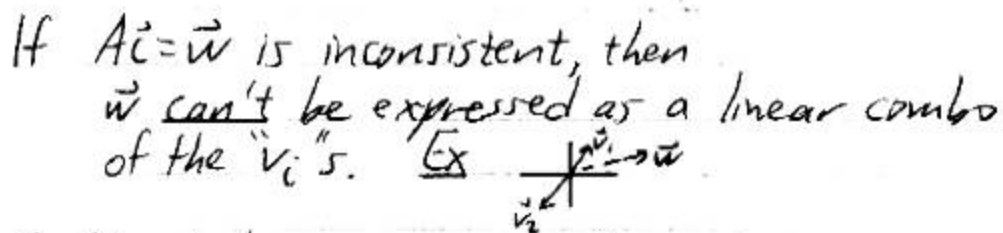 If Ac⃗=w⃗ is inconsistent, then
w⃗ can't be expressed as a linear combo
of the "v⃗ᵢ"s. Ex v⃗₁ w⃗
v⃗₂